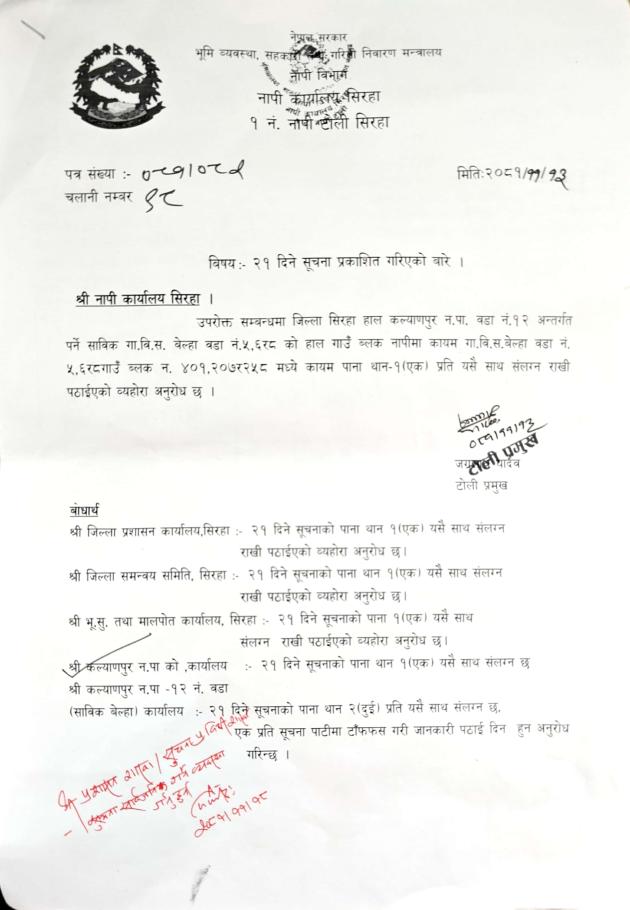 नेपाल सरकार
भूमि व्यवस्था, सहकारी तथा गरिबी निवारण मन्त्रालय
नापी विभाग
नापी कार्यालय सिरहा
१ नं. नापी टोली सिरहा
पत्र संख्या :- ०८१/०८२
मितिः२०८१/११/१३
चलानी नम्बर ९८
विषय:- २१ दिने सूचना प्रकाशित गरिएको बारे ।
श्री नापी कार्यालय सिरहा ।
उपरोक्त सम्बन्धमा जिल्ला सिरहा हाल कल्याणपुर न.पा. वडा नं.१२ अन्तर्गत
पर्ने साविक गा.वि.स. बेल्हा वडा नं.५,६र८ को हाल गाउँ ब्लक नापीमा कायम गा.वि.स.बेल्हा वडा नं.
५,६र८गाउँ ब्लक न. ४०१,२०७र२५८ मध्ये कायम पाना थान-१(एक) प्रति यसै साथ संलग्न राखी
पठाईएको व्यहोरा अनुरोध छ ।
०८१/११/१३
टोली प्रमुख
यादव
टोली प्रमुख
बोधार्थ
श्री जिल्ला प्रशासन कार्यालय,सिरहा :- २१ दिने सूचनाको पाना थान १(एक) यसै साथ संलग्न
राखी पठाईएको व्यहोरा अनुरोध छ।
श्री जिल्ला समन्वय समिति, सिरहा :- २१ दिने सूचनाको पाना थान १(एक) यसै साथ संलग्न
राखी पठाईएको व्यहोरा अनुरोध छ।
श्री भू.सु. तथा मालपोत कार्यालय, सिरहा :- २१ दिने सूचनाको पाना १(एक) यसै साथ
संलग्न राखी पठाईएको व्यहोरा अनुरोध छ।
श्री कल्याणपुर न.पा को ,कार्यालय :- २१ दिने सूचनाको पाना थान १(एक) यसै साथ संलग्न छ
श्री कल्याणपुर न.पा -१२ नं. वडा
(साविक बेल्हा) कार्यालय :- २१ दिने सूचनाको पाना थान २(दुई) प्रति यसै साथ संलग्न छ,
एक प्रति सूचना पाटीमा टाँफफस गरी जानकारी पठाई दिन हुन अनुरोध
गरिन्छ ।
श्री प्रशासन शाखा / सूचना प्रविधि शाखा
गर्नुहुन
२०८१/११/१८